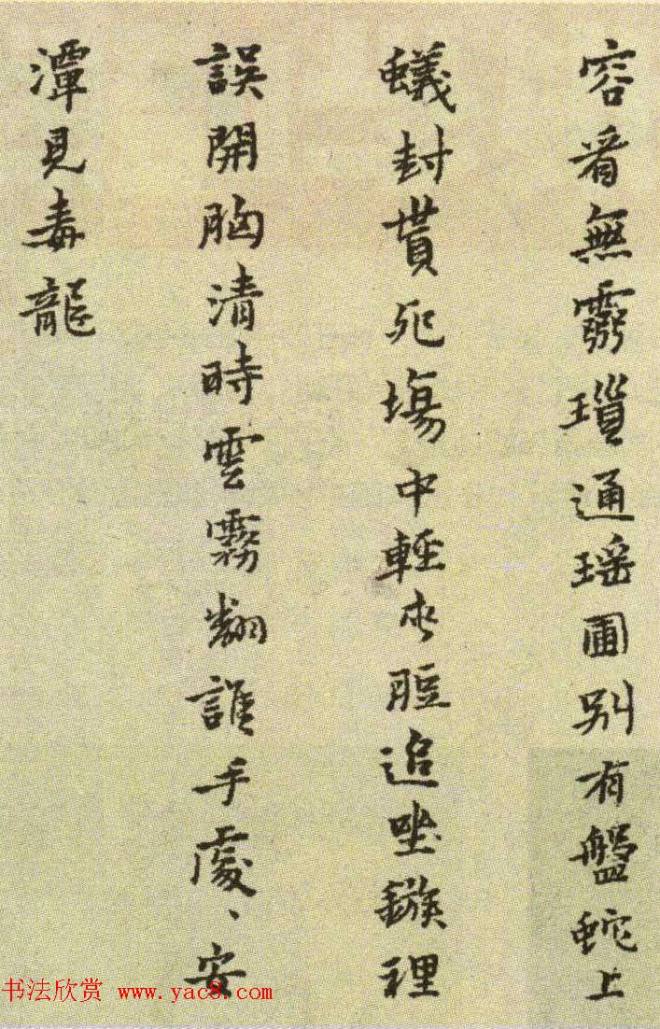 容看無瑣通瑶圃别有盤蛇上
蟻封死塲中輕脰追鏃裡
誤開胸清時雲霧翻誰手處、安
潭見毒龍
书法欣赏 www.yac8.com